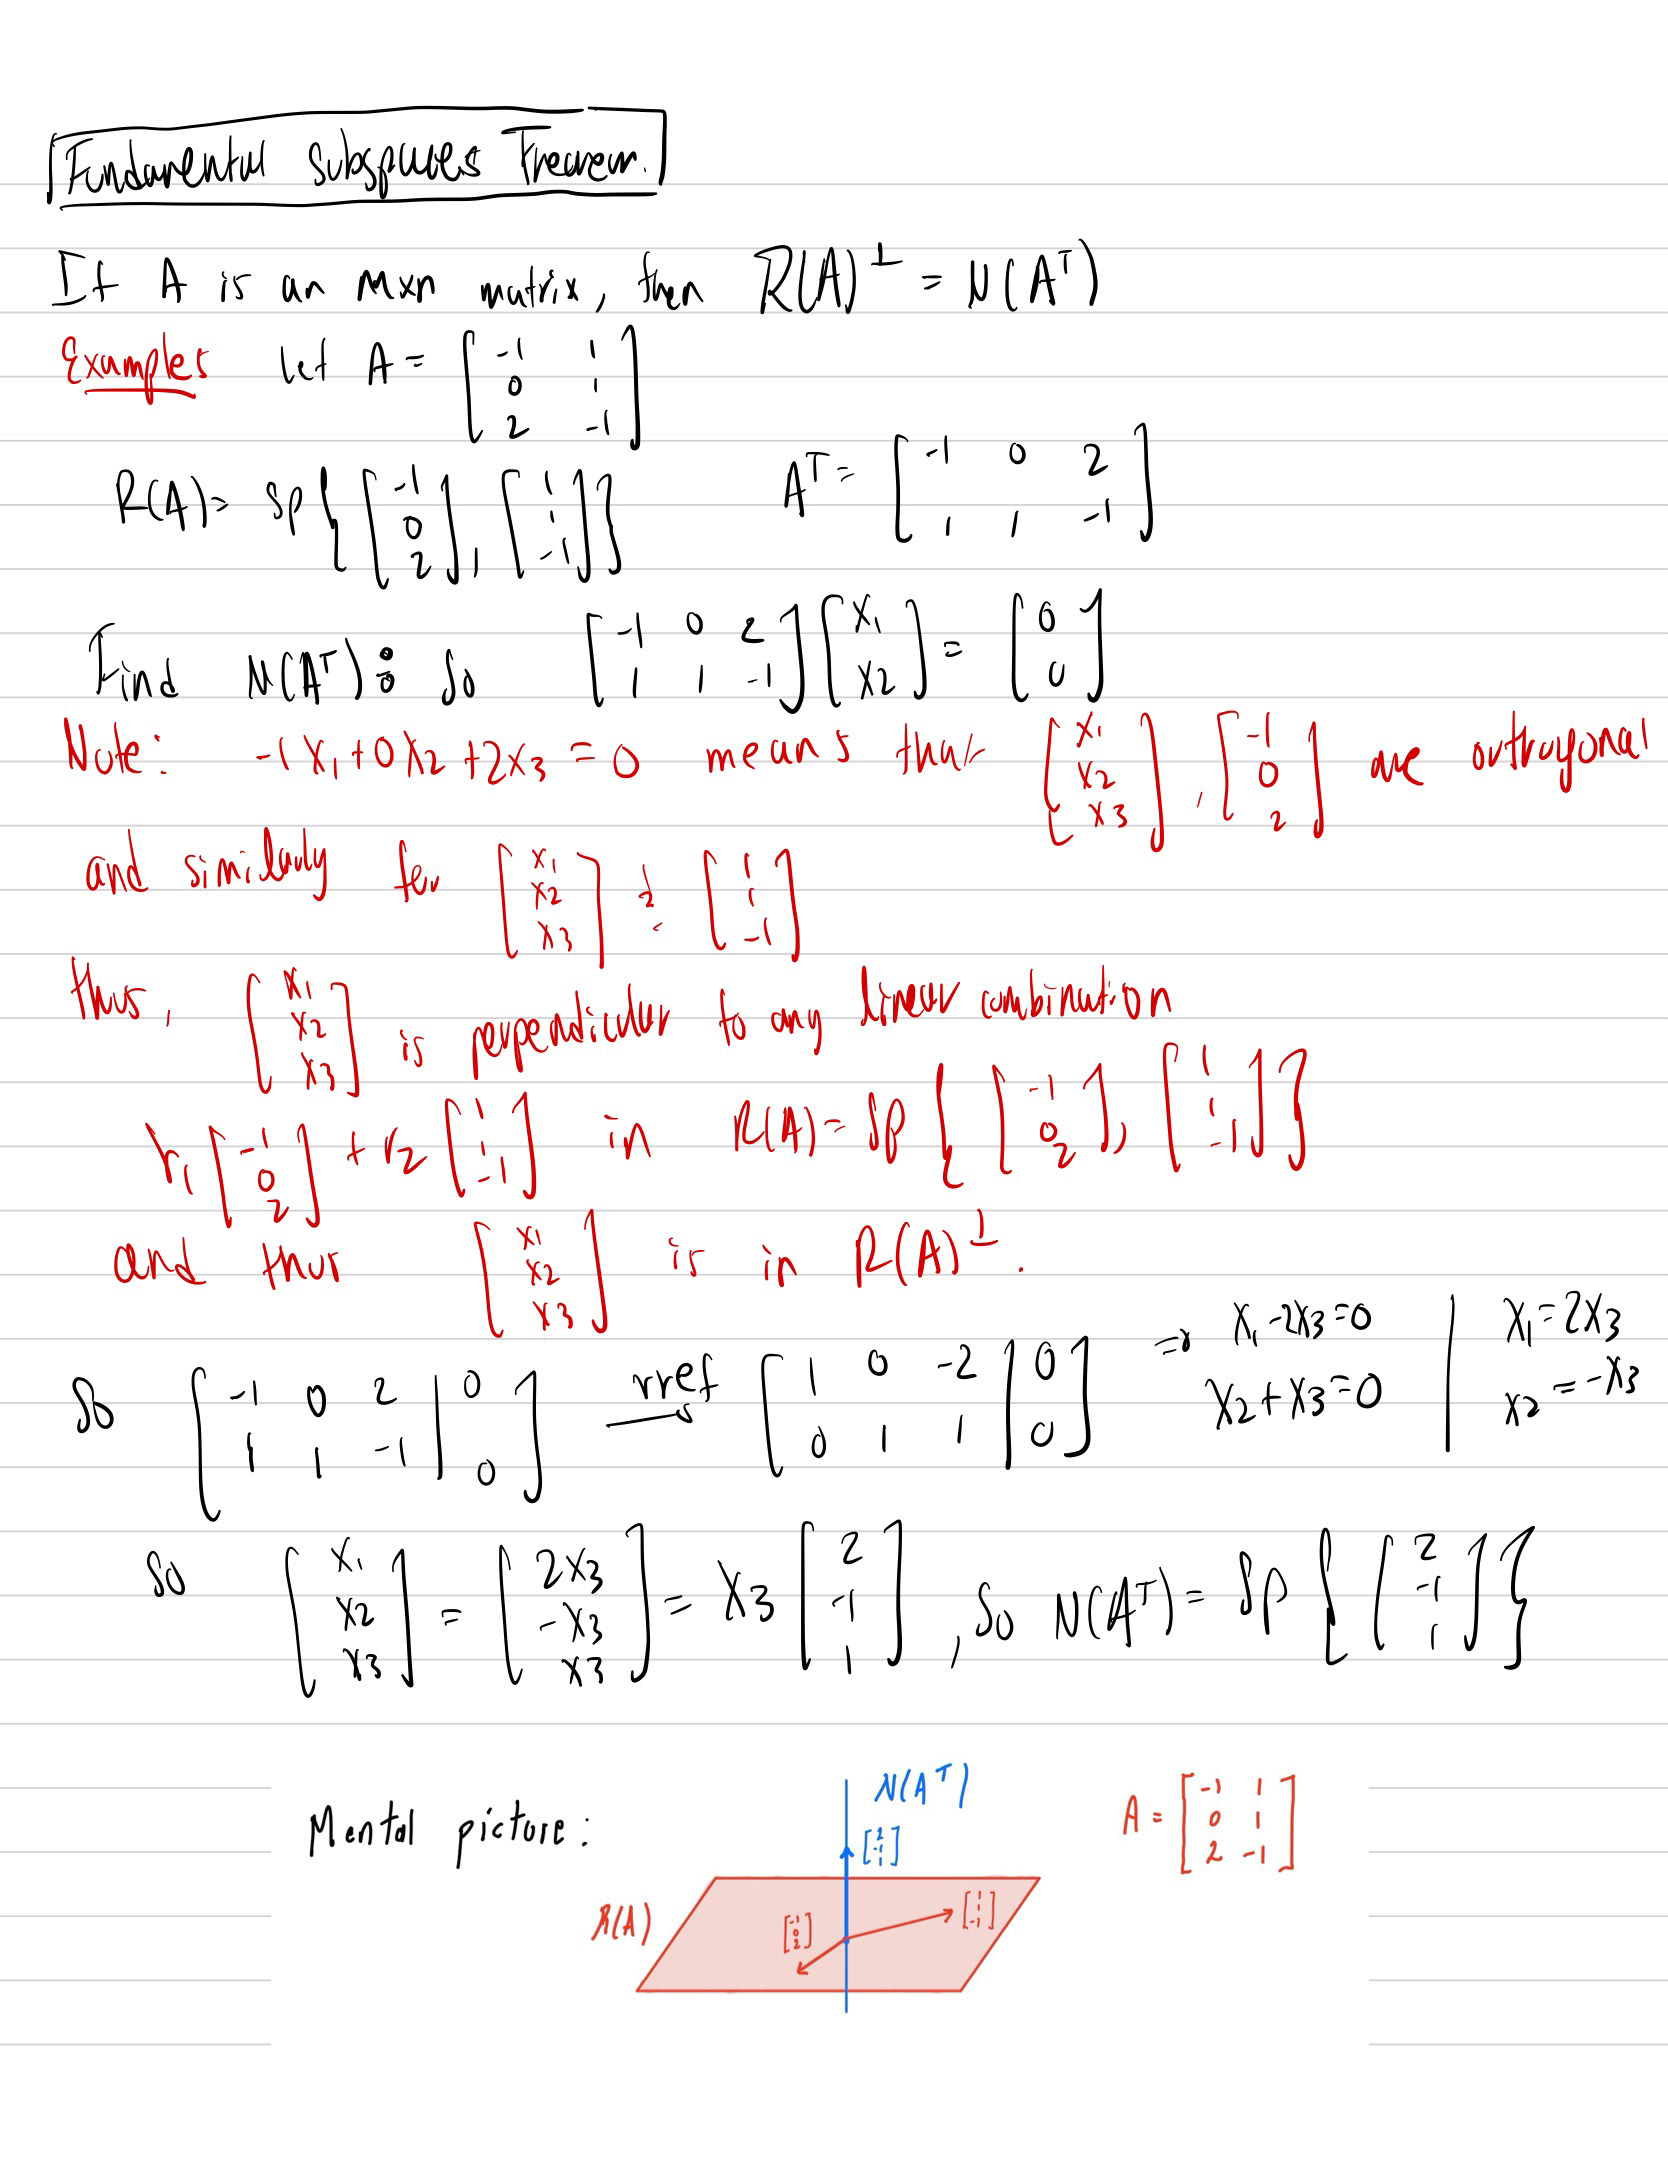 Fundamental Subspaces Theorem.
If A is an mxn matrix, then R(A)^⊥ = N(A^T)
Examples let A = [-1 1; 0 1; 2 -1]
R(A) = sp { [-1; 0; 2], [1; 1; -1] } A^T = [-1 0 2; 1 1 -1]
Find N(A^T): So [-1 0 2; 1 1 -1] [x1; x2] = [0; 0]
Note: -1x1+0x2+2x3=0 means that [x1; x2; x3], [-1; 0; 2] are orthogonal
and similarly for [x1; x2; x3] & [1; 1; -1]
thus, [x1; x2; x3] is perpendicular to any linear combination
r1 [-1; 0; 2] + r2 [1; 1; -1] in R(A) = sp { [-1; 0; 2], [1; 1; -1] }
and thus [x1; x2; x3] is in R(A)^⊥.
So [-1 0 2 | 0; 1 1 -1 | 0] rref→ [1 0 -2 | 0; 0 1 1 | 0] ⇒ x1-2x3=0 | x1=2x3
x2+x3=0 | x2=-x3
So [x1; x2; x3] = [2x3; -x3; x3] = x3 [2; -1; 1], So N(A^T) = sp { [2; -1; 1] }
Mental picture: N(A^T) A = [-1 1; 0 1; 2 -1]
[2; -1; 1]
R(A) [-1; 0; 2] [1; 1; -1]